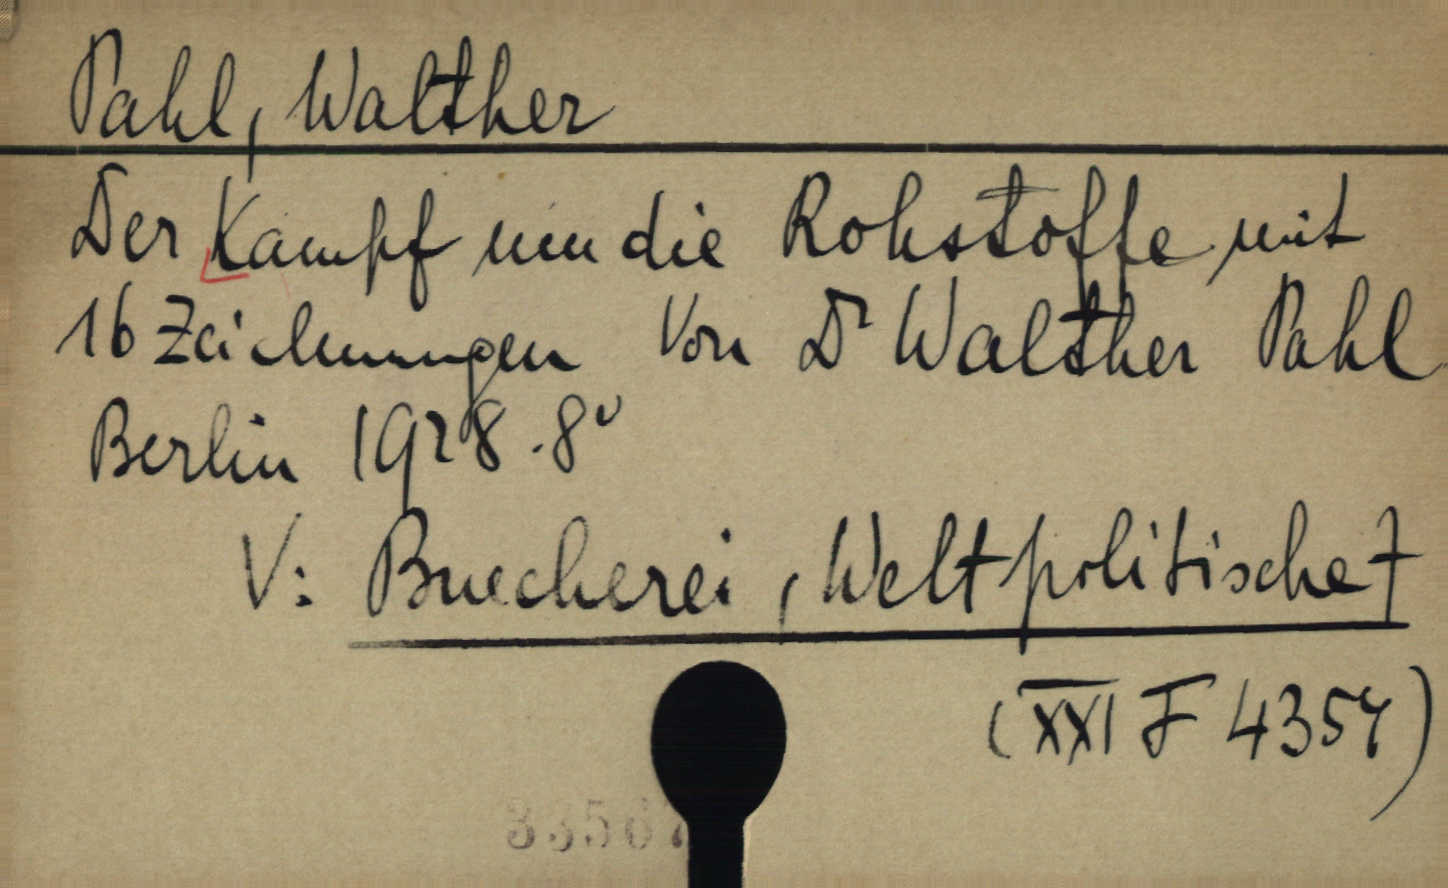 Pahl, Walther
Der Kampf um die Rohstoffe, mit
16 Zeichnungen Von Dr Walther Pahl
Berlin 1928. 8º
V: Buecherei, Weltpolitische 7
(XXI F 4357)